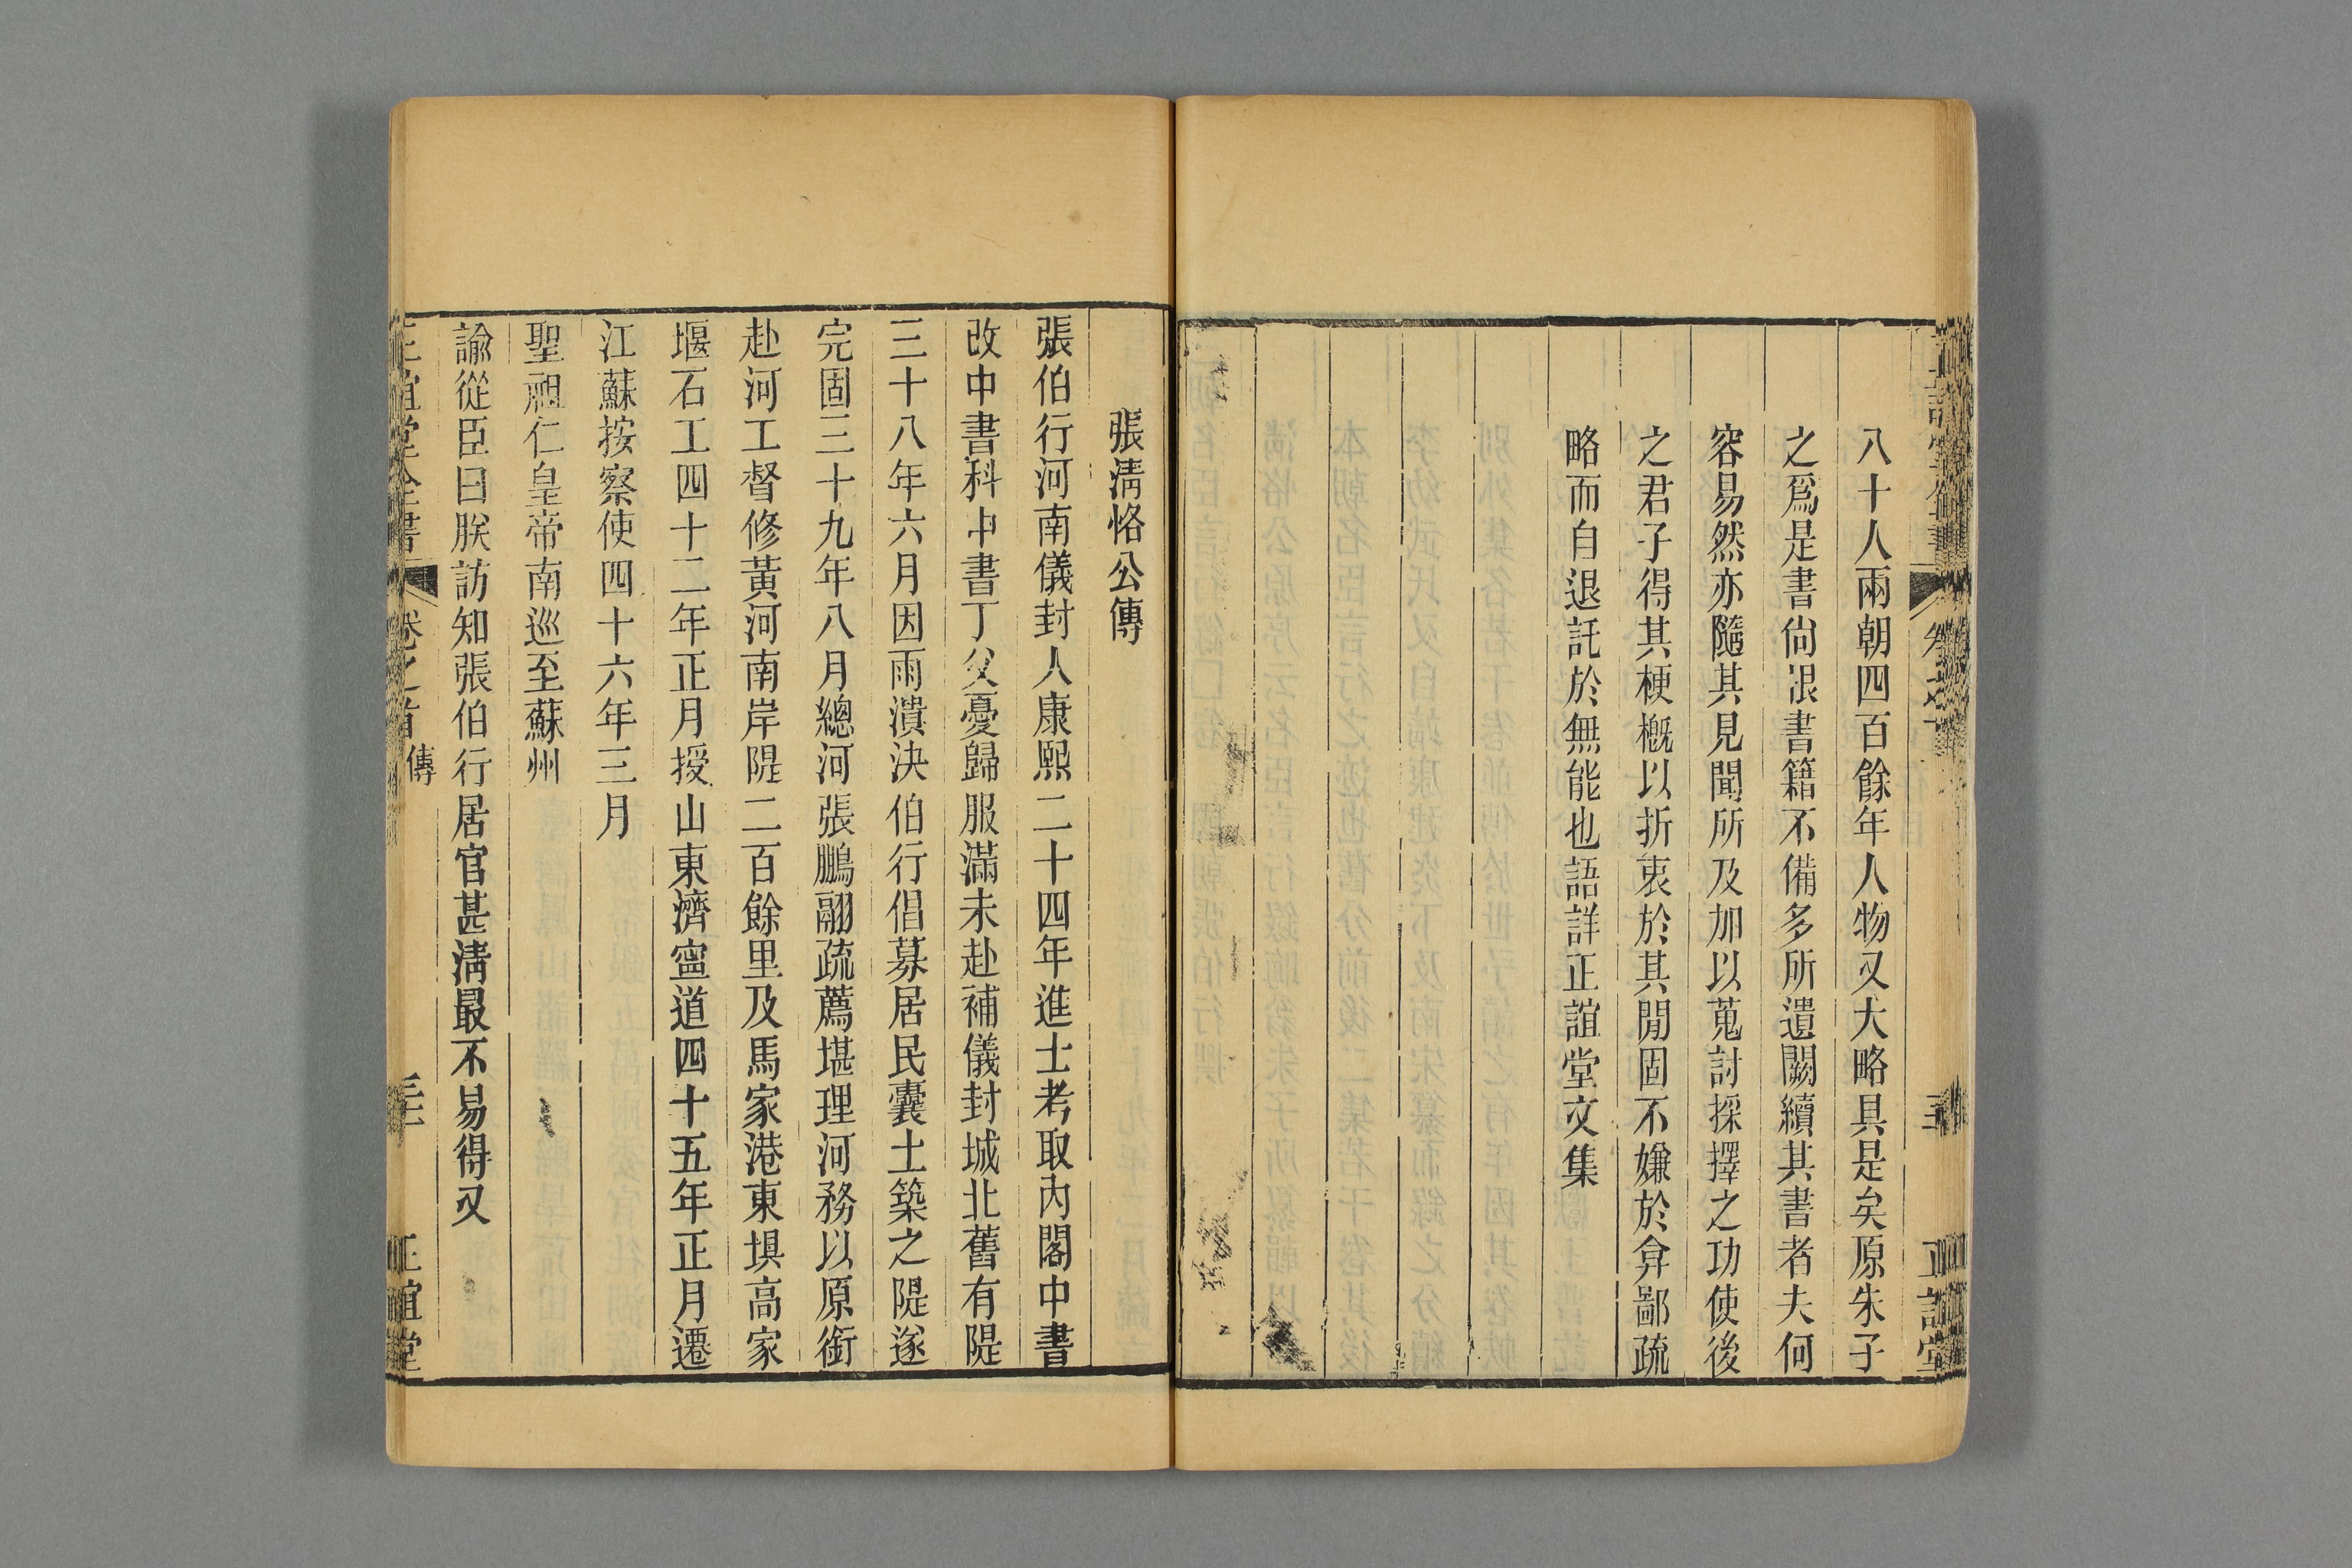 八十人兩朝四百餘年人物又大略具是矣原朱子
之爲是書尙泯書籍不備多所遺闕續其書者夫何
容易然亦隨其見聞所及加以蒐討採擇之功使後
之君子得其梗槪以折衷於其閒固不嫌於弇鄙疏
略而自退託於無能也語詳正誼堂文集
張淸恪公傳
張伯行河南儀封人康熙二十四年進士考取內閣中書
改中書科中書丁父憂歸服滿未赴補儀封城北舊有隄
三十八年六月因雨潰決伯行倡募居民囊土築之隄遂
完固三十九年八月總河張鵬翮疏薦堪理河務以原銜
赴河工督修黃河南岸隄二百餘里及馬家港東壩高家
堰石工四十二年正月授山東濟寧道四十五年正月遷
江蘇按察使四十六年三月
聖祖仁皇帝南巡至蘇州
諭從臣曰朕訪知張伯行居官甚淸最不易得又
正誼堂全書 卷之首 傳 正誼堂